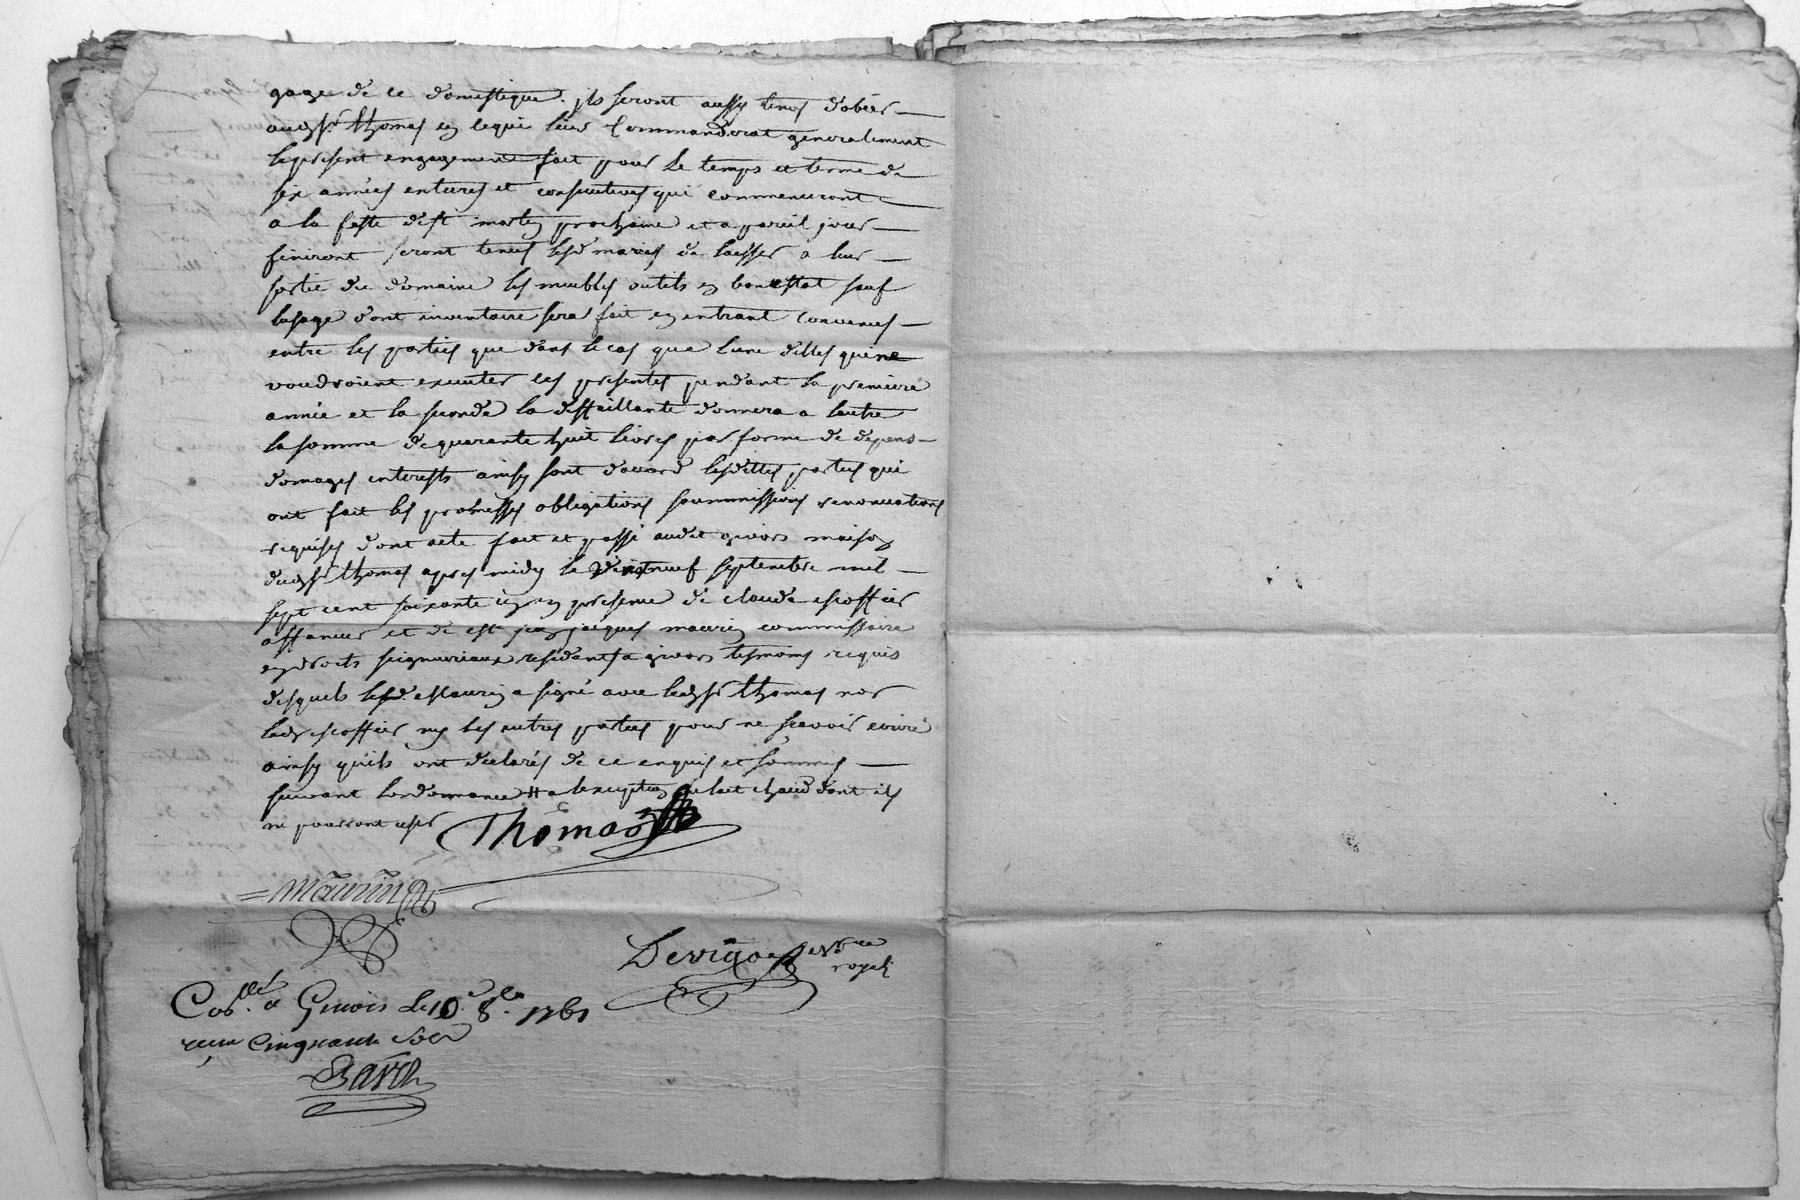 gage de ce domestique. jls seront aussy tenus d'obeir
audsr. thomas en cequi leur Commandera et generalement
le present engagement fait pour le temps et terme de
six années entieres et consecutives qui commenceront
a la feste de st martin prochaine et a pareil jour
finiront seront tenus lesd mariés de laisser a leur
sortie du domaine les meubles outils en bon estat sauf
lusage dont inventaire sera fait en entrant Convenus
entre les parties que dans le cas que lune delles qui ne
voudroient executer ces presentes pendant la premiere
année et la seconde la deffaillante donnera a lautre
la somme de quarante huit livres par forme de depens
domages interests ainsy sont daccord lesdittes parties qui
ont fait les promesses obligations soummissions renonciations
requises dont acte fait et passé audit givors maison
dudsr thomas apres midy le dixneuf septembre mil
sept cent soixante un en presence de claude escoffier
affaneur et de sr jean jacques maurin commissaire
en droits seigneuriaux residants a givors temoins requis
desquels led sr Maurin a signé avec ledsr thomas non
led escoffier ny les autres parties pour ne scavoir ecrire
ainsy quils ont declarés de ce enquis et sommés
suivant lordonnance # a lexception du lait chaud dont ils
ne pourront user Thomas
= maurin
Devigo nore
royal
Coollé a Givois Le 10e 8bre 1761
recu Cinquante Sols